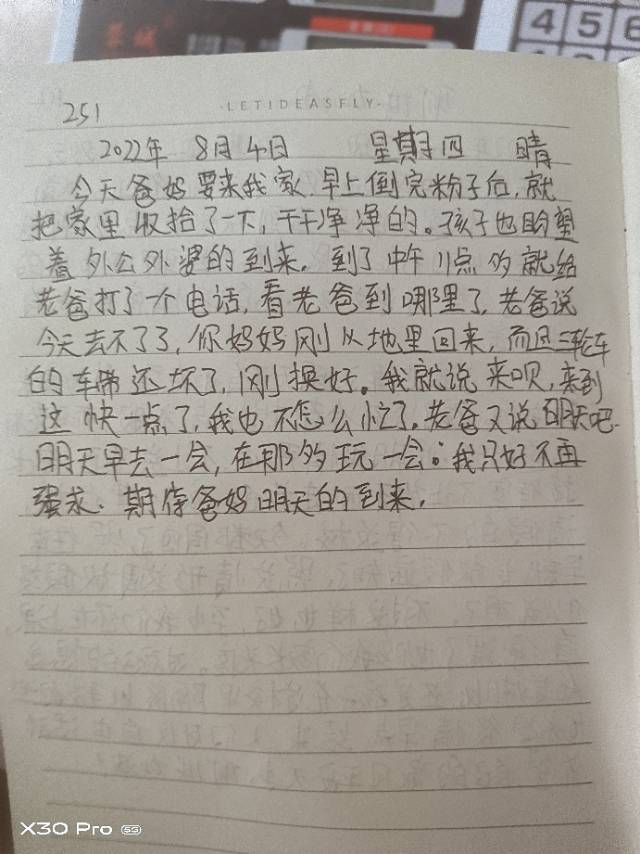 4 5 6
251
·LETIDEASFLY·
2022年 8月4日 星期四 晴
今天爸妈要来我家.早上倒完粉子后,就
把家里收拾了一下,干干净净的。孩子也盼望
着外公外婆的到来.到了中午11点多就给
老爸打了个电话,看老爸到哪里了,老爸说
今天去不了了,你妈妈刚从地里回来,而且三轮车
的车带还坏了,刚换好。我就说来呗,来到
这快一点了,我也不怎么忙了.老爸又说明天吧.
明天早去一会,在那多玩一会。我只好不再
强求.期待爸妈明天的到来.
X30 Pro 5G